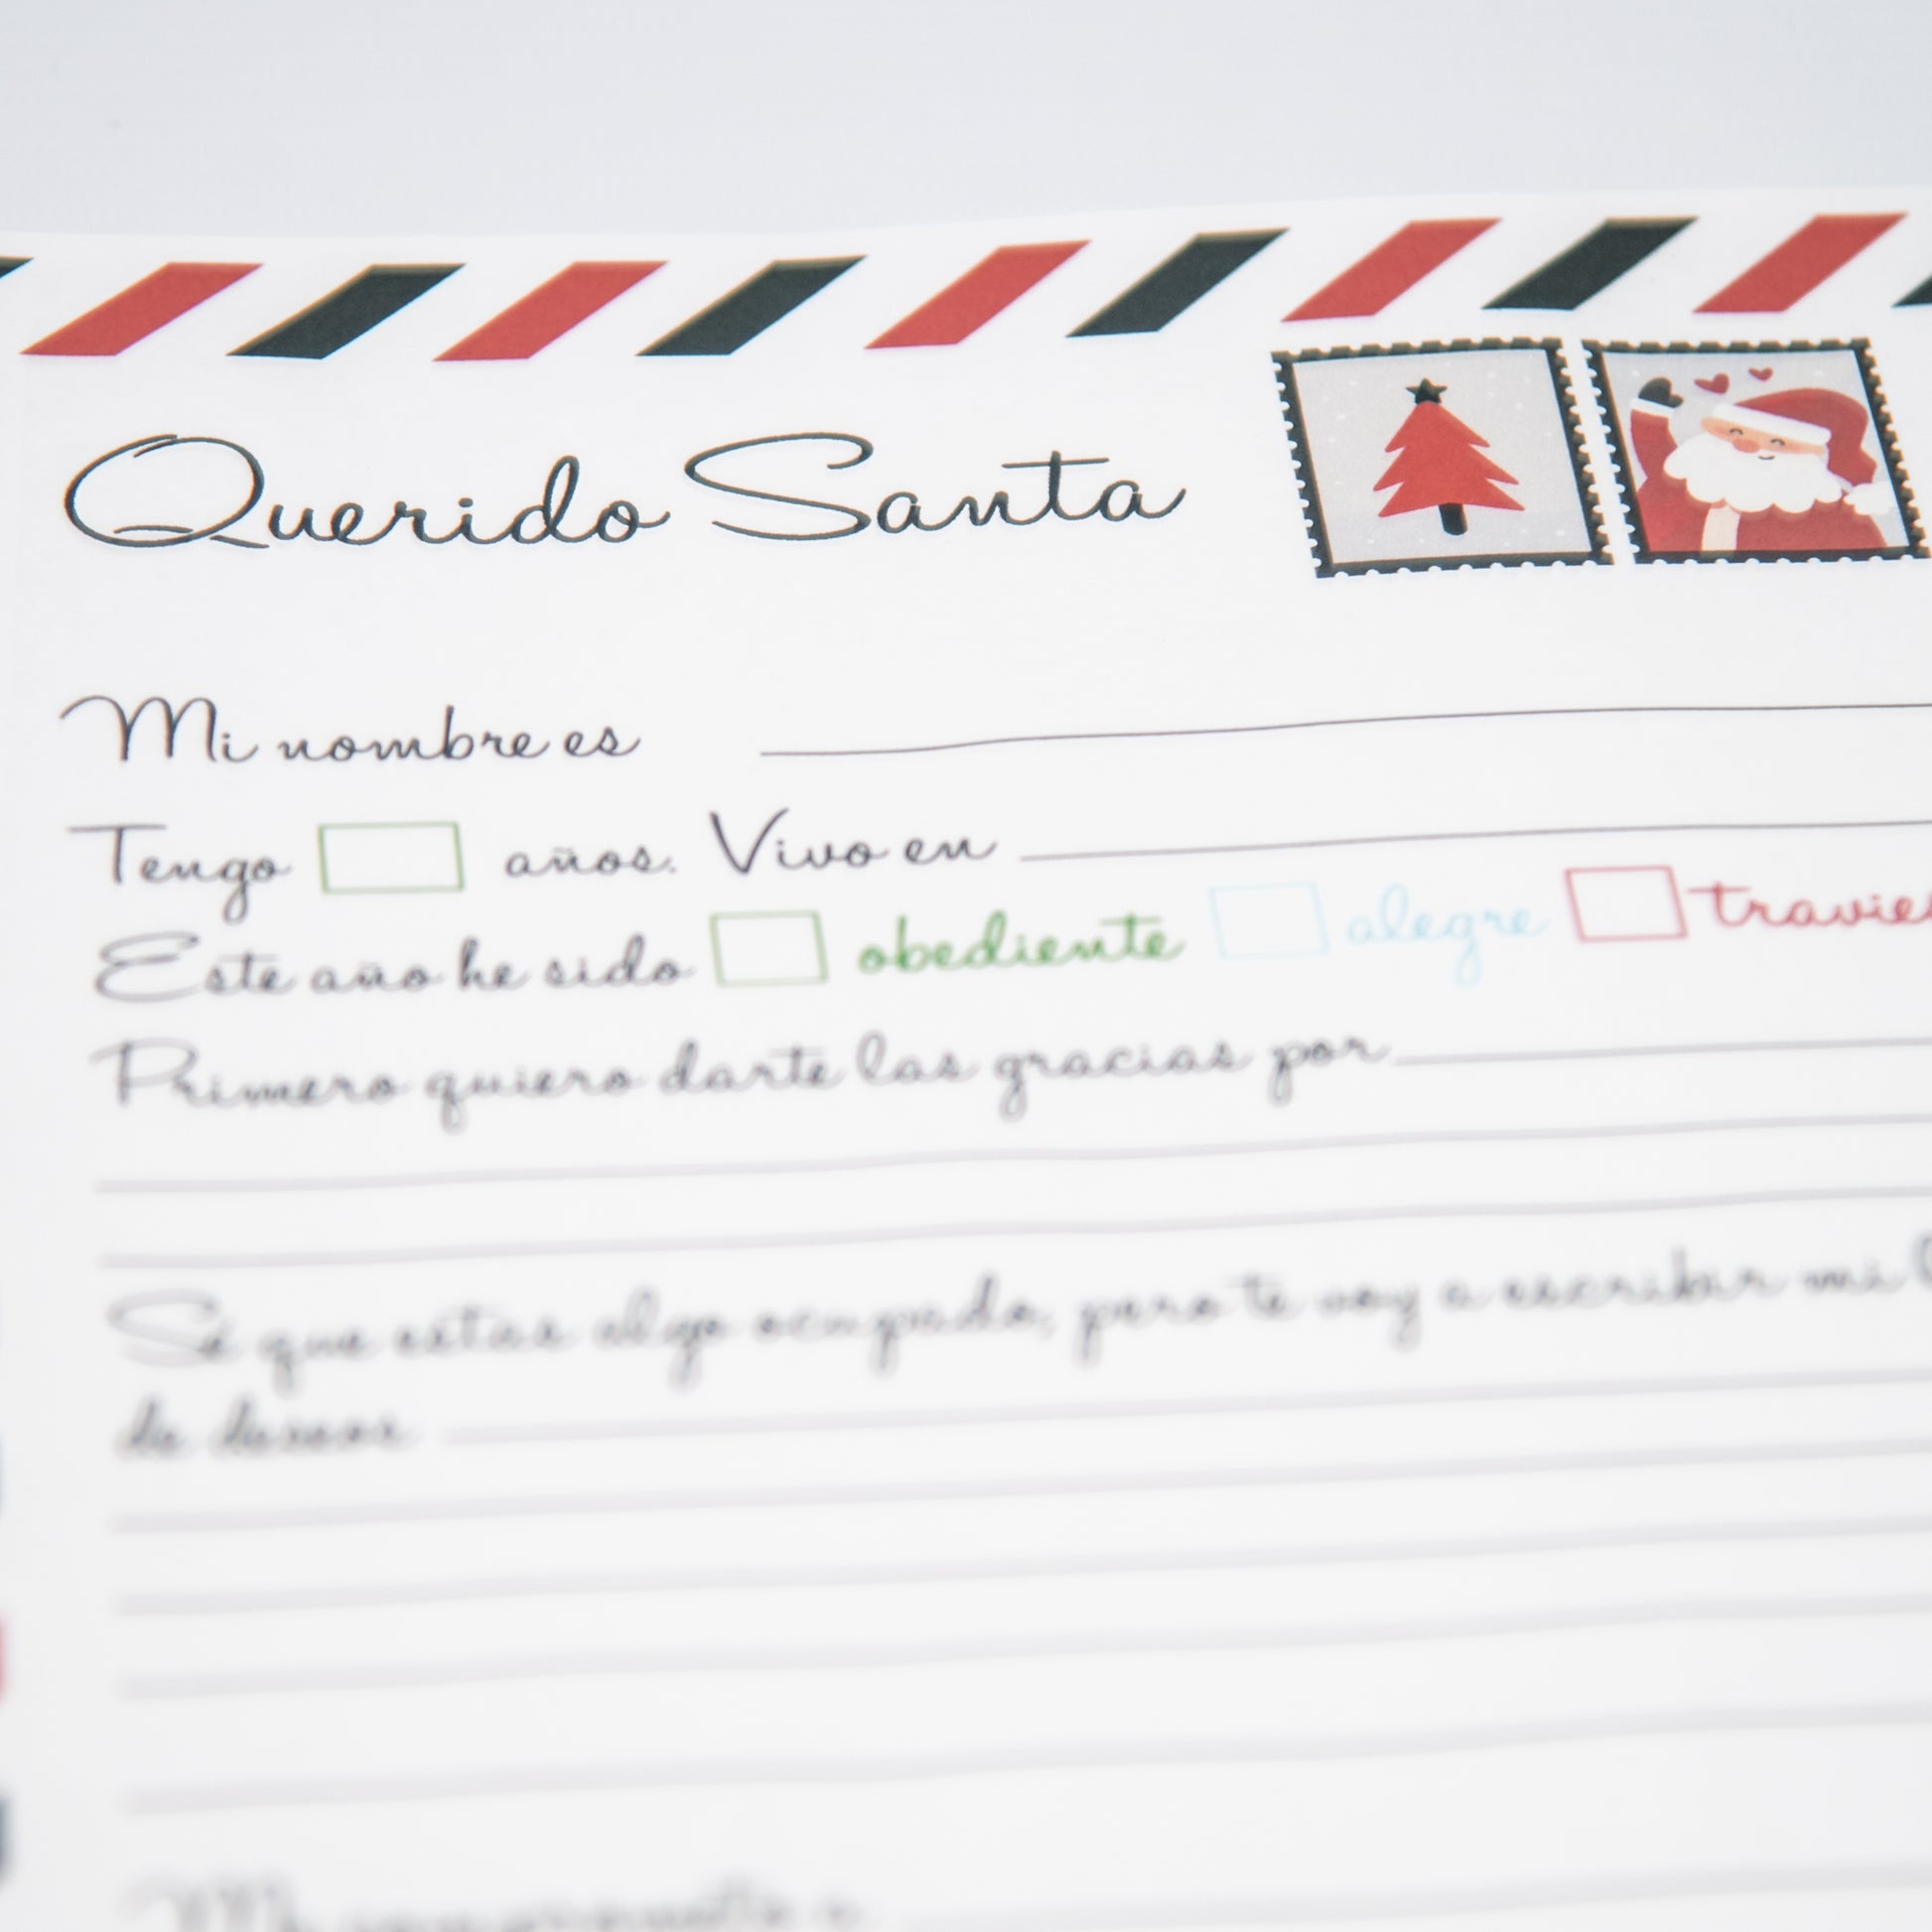 Querido Santa
Mi nombre es
Tengo años. Vivo en
Este año he sido obediente alegre travie
Primero quiero darte las gracias por
Sé que estas algo ocupado, pero te voy a escribir mi
de deseos